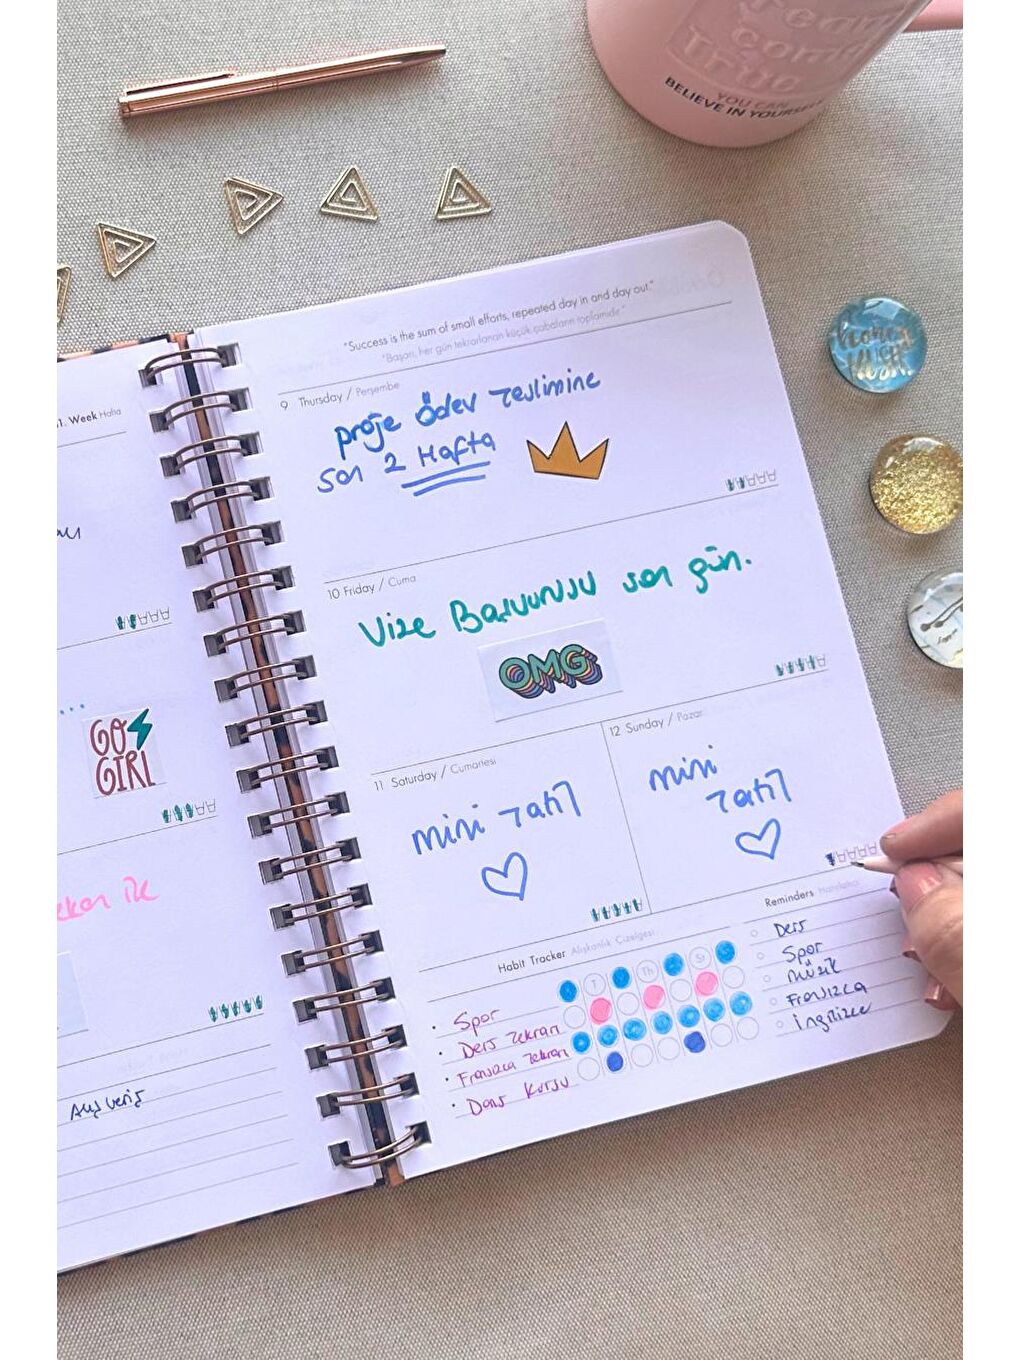 YOU CAN
BELIEVE IN YOURSELF
"Success is the sum of small efforts, repeated day in and day out."
"Başarı, her gün tekrarlanan küçük çabaların toplamıdır."
9 Thursday / Perşembe
proje ödev teslimine
son 2 Hafta
10 Friday / Cuma
Vize Başvurusu son gün.
OMG
11 Saturday / Cumartesi
mini tatil
12 Sunday / Pazar
mini
tatil
Habit Tracker Alışkanlık Çizelgesi
T Th Sa
• Spor
• Ders Tekrarı
• Fransızca Tekrarı
• Dans Kursu
Reminders
Ders
Spor
müzik
Fransızca
ingilizce
Week Hafta
GO
GIRL
Alışveriş